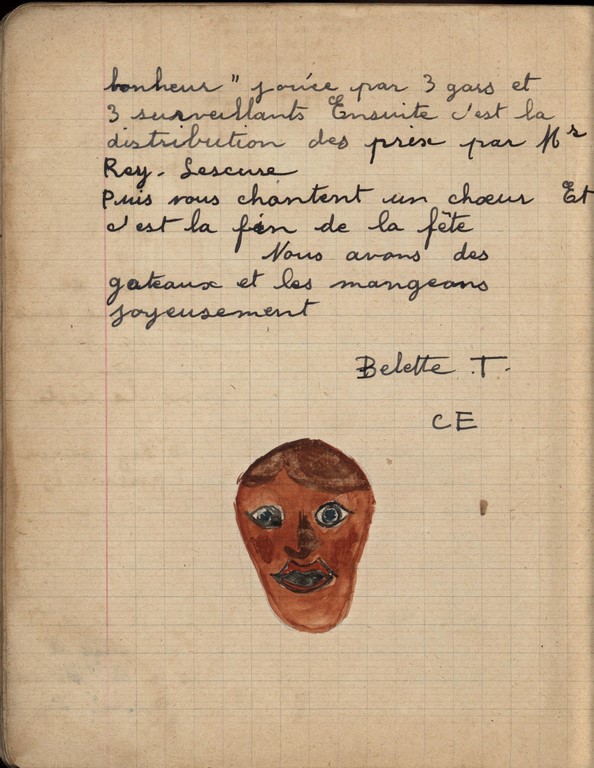 bonheur " jouée par 3 gars et
3 surveillants Ensuite c'est la
distribution des prix par Mr
Rey-Lescure
Puis vous chantent un chœur Et
c'est la fin de la fête
Nous avons des
gateaux et les mangeons
joyeusement
Belette T.
CE